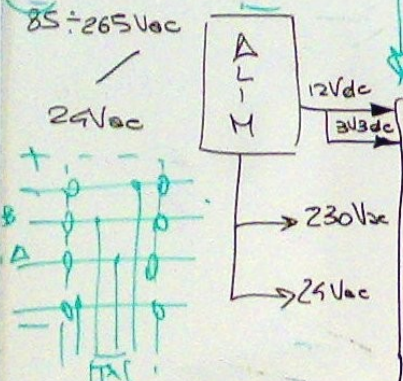 85÷265Vac
24Vac
ALIM
12Vdc
3V3dc
230Vac
24Vac
+ - -
B
A
-
TX